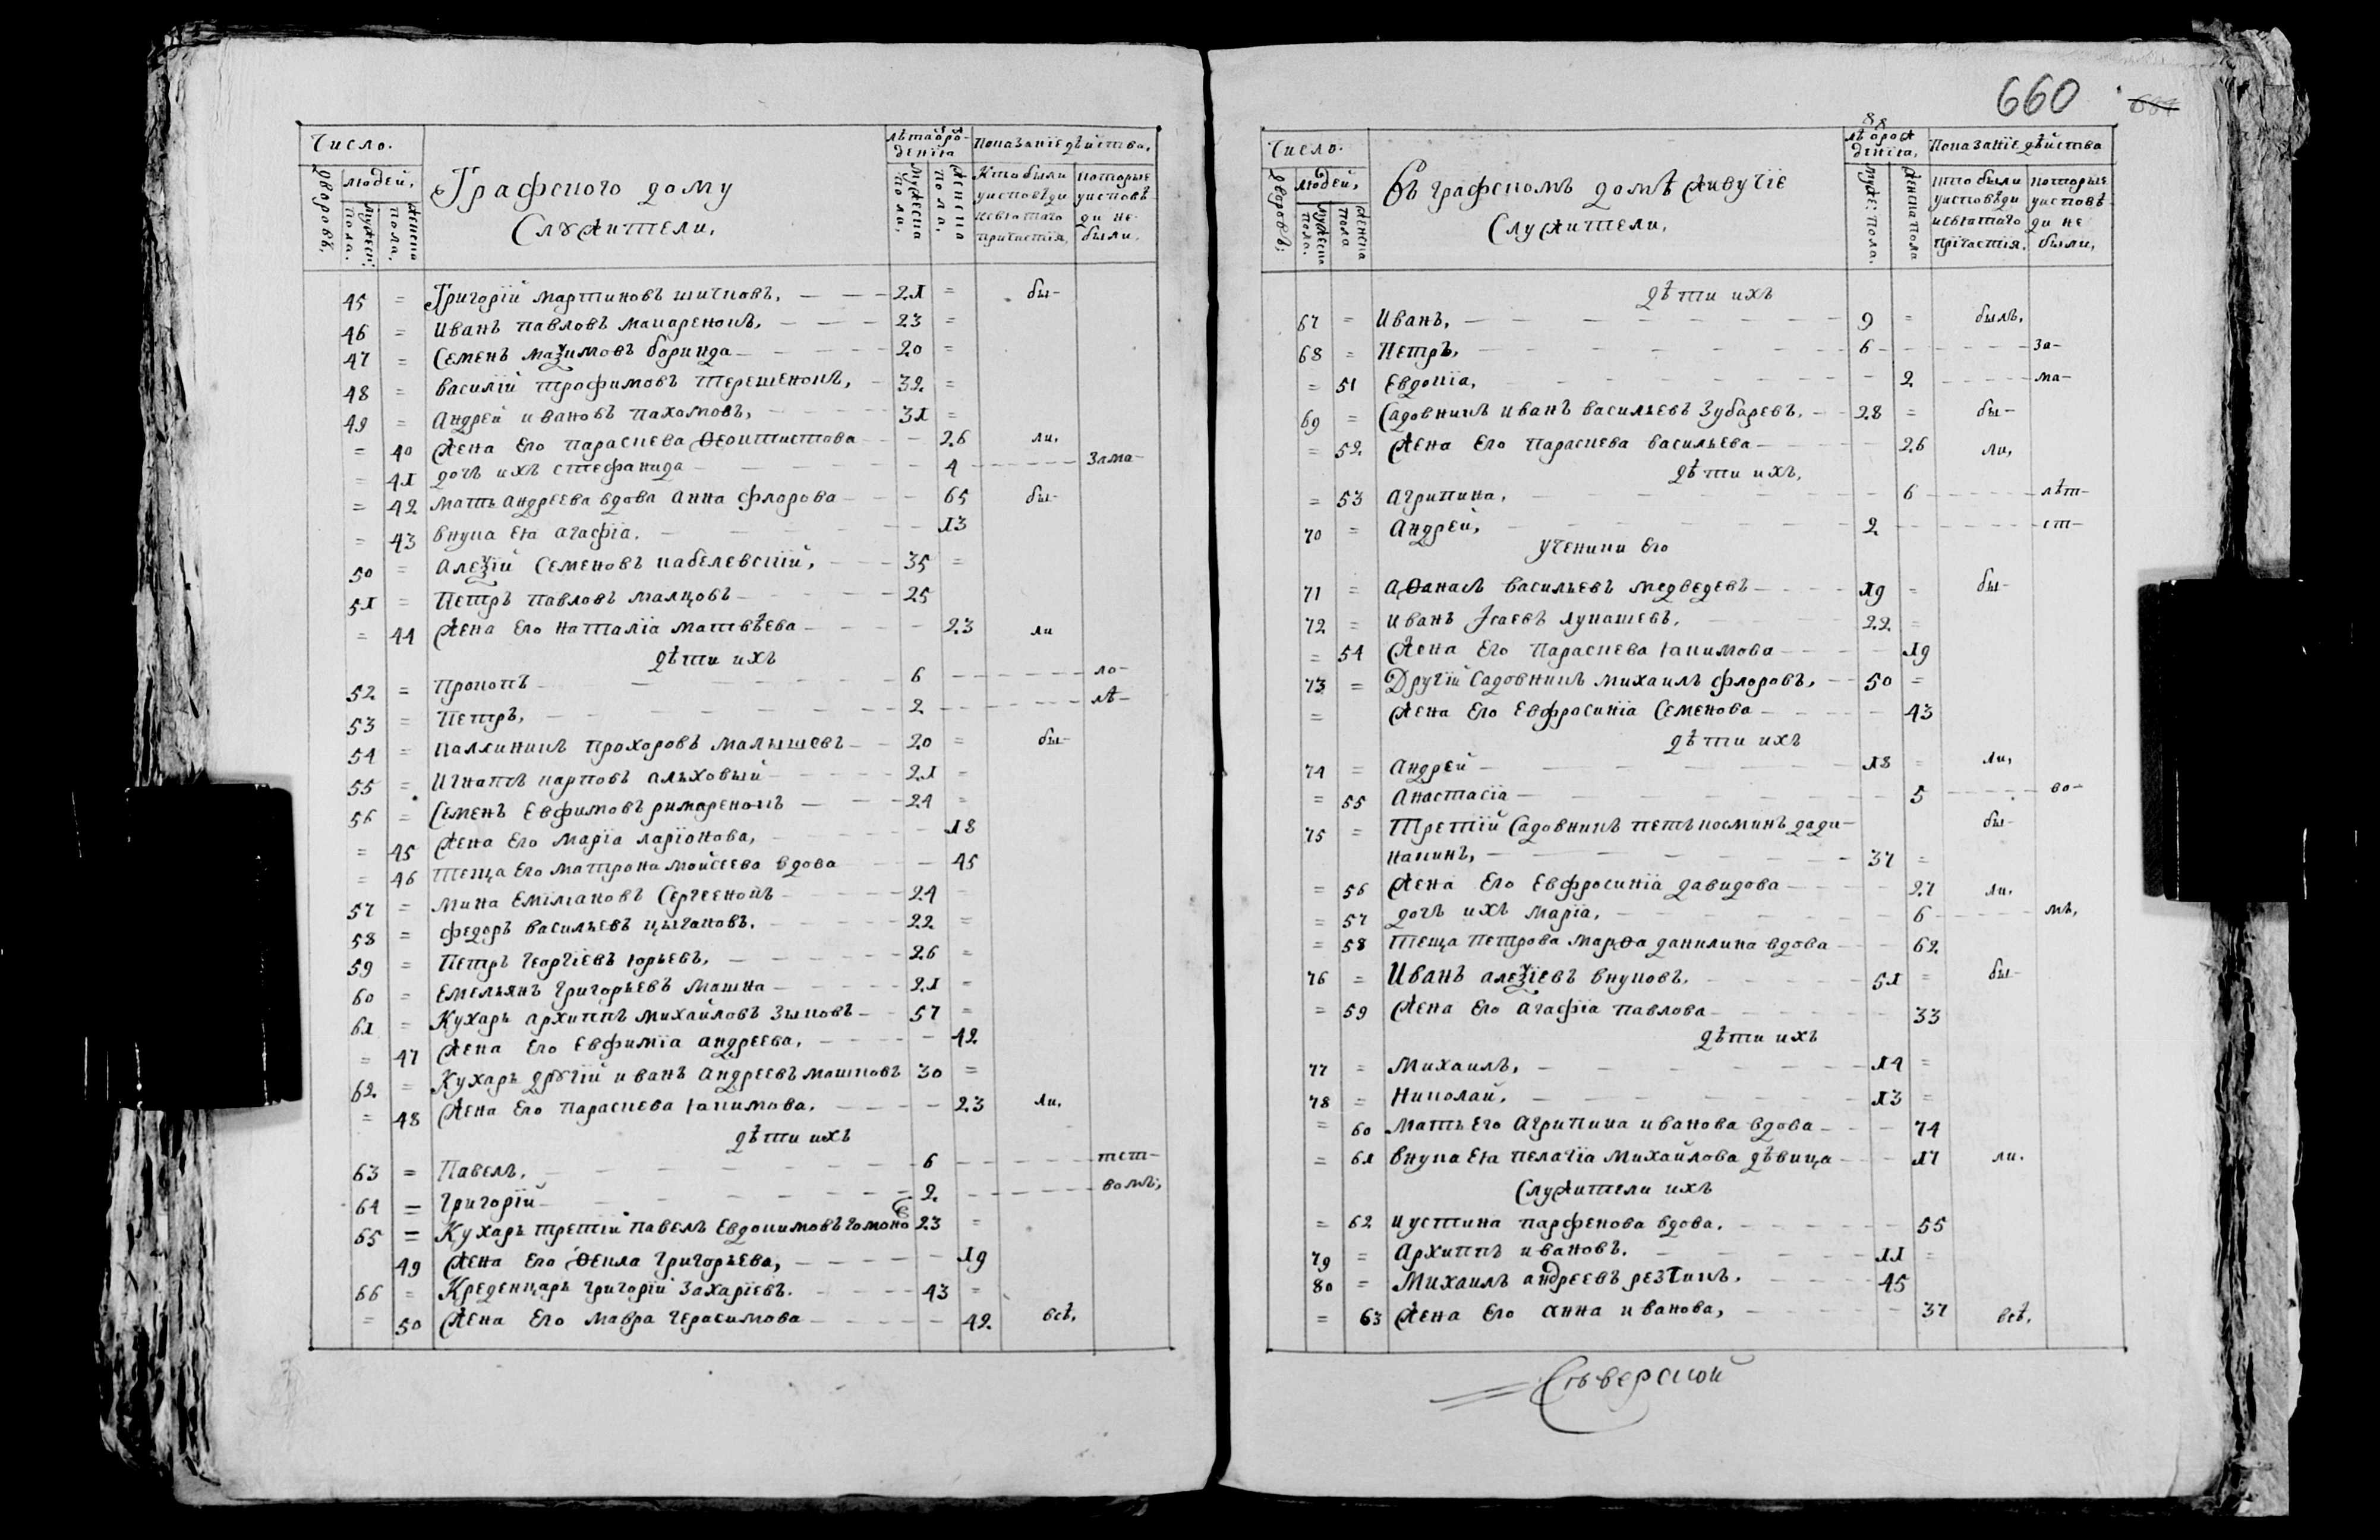 Число.
дворовъ.
людей,
мужеск:
пола.
женска
пола.
Графского дому
Служители,
лѣта ѿ ро-
денїѧ
мужеска
поли.
женска
пола.
Показанїе дѣйства,
Кто были
у исповѣди
и святаго
причастїя,
которые
у исповѣ-
ди не
были.
45 = Григорїй мартиновъ шичковъ, 21 = бы-
46 = Иванъ павловъ макаренокъ, 23 =
47 = Семенъ маѯимовъ боринда 20 =
48 = василїй трофимовъ терешенокъ, 32 =
49 = Андрей ивановъ пахомовъ, 31 =
= 40 жена его параскева Ѳеоктистова 26 ли,
= 41 дочъ ихъ стефанида 4 зама-
= 42 мать андреева вдова анна флорова 65 бы-
= 43 внука еѧ агафїа. 13
50 = алеѯїй Семеновъ кабелевскїй, 35 =
51 = Петръ павловъ малцовъ 25
= 44 жена его наталїа матвѣева 23 ли
дѣти ихъ
52 = прокопъ 6 ло-
53 = петръ, 2 лѣ-
54 = калиникъ прохоровъ малышевъ 20 = бы-
55 = игнатъ карповъ алъховый 21 =
56 = Семенъ евфимовъ римаренокъ 24 =
= 45 жена его марїа ларїонова, 18
= 46 теща его матрона мойсеева вдова 45
57 = мина емїлїановъ Сергеенокъ 24
58 = федоръ васильевъ цыгановъ. 22 =
59 = Петръ георгїевъ юрьевъ, 26 =
60 = емельянъ григорьевъ машка 21 =
61 = Кухаръ архиппъ михайловъ зыковъ 57 =
= 47 жена его евфимїа андреева, 42
62 = Кухаръ другїй иванъ андреевъ машковъ 30 =
= 48 жена его параскева ѧкимова. 23 ли,
дѣти ихъ
63 = Павелъ, 6 тст-
64 = григорїй 2 вомъ,
65 = Кухаръ третїй павелъ евдокимовъ гомоно 23 =
49 жена его Ѳекла григорьева, 19
66 = Креденцаръ григорїй захарїевъ. 43 =
= 50 жена его мавра герасимова 42 всѣ,
660
684
88
Число.
дворовъ:
людей,
мужеска
пола.
женска
пола
Въ графскомъ домѣ живучїе
Служители,
лѣ ѿ рож
денїѧ,
муже: пола.
женска пола
Показанїе дѣйства
кто были
у исповѣди
и святаго
прїчастїя.
которые
у исповѣ-
ди не
были,
дѣти ихъ
67 = Иванъ, 9 = былъ,
68 = Петръ, 6 за-
= 51 евдокїа, 2 ма-
69 = Садовникъ иванъ васильевъ зубаревъ, 28 = бы-
= 52 жена его параскева васильева 26 ли,
дѣти ихъ,
= 53 агрипина, 6 лѣт-
70 = андрей, 2 ст-
ученики его
71 = аѲанасъ васильевъ медведевъ 19 = бы-
72 = иванъ Ісаевъ лукашевъ, 22 =
= 54 жена его параскева ѧкимова 19
73 = Другїй Садовникъ михаилъ флоровъ, 50 =
= жена его евфросинїа Семенова 43
дѣти ихъ
74 = андрей 18 = ли,
= 55 анастасїа 5 во-
75 = Третїй Садовникъ петъ косминъ дади- бы-
накинъ, 37 =
= 56 жена его евфросинїа давидова 27 ли,
= 57 дочъ ихъ марїа, 6 мъ,
= 58 теща петрова марѲа данилина вдова 62
76 = Иванъ алеѯїевъ внуковъ, 51 = бы-
= 59 жена его агафїа павлова 33
дѣти ихъ
77 = михаилъ, 14 =
78 = николай, 13 =
= 60 мать его агрипина иванова вдова 74
= 61 внука еѧ пелагїа михайлова дѣвица 17 ли.
Служители ихъ
= 62 иустина парфенова вдова, 55
79 = архиппъ ивановъ, 11 =
80 = михаилъ андреевъ резтикъ, 45
= 63 жена его анна иванова, 37 всѣ,
Сѣверской